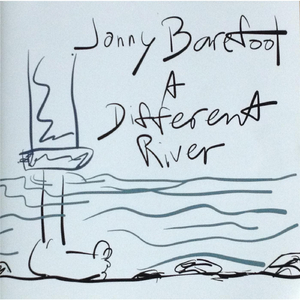 Jonny Barefoot
A
Different
River